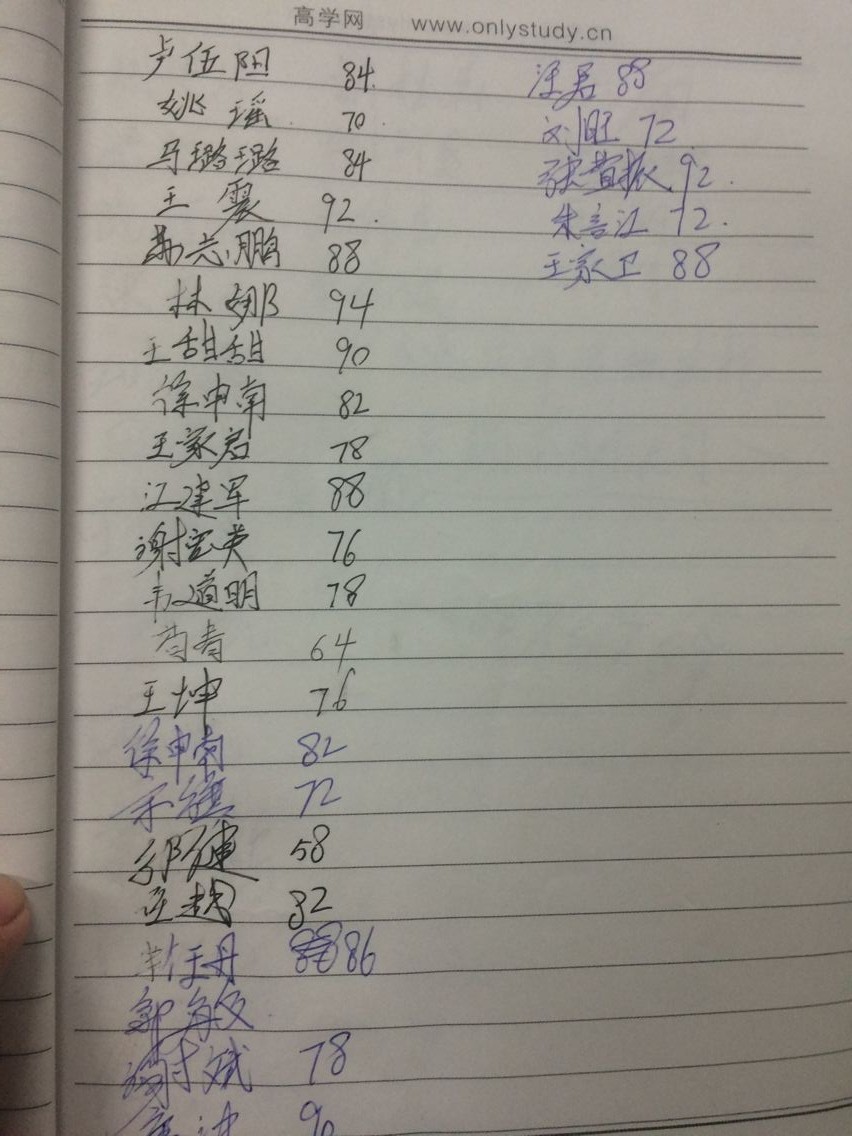 高学网 www.onlystudy.cn
卢伍阳 84
姚瑶 70
马璐璐 84
王震 92
志鹏 88
林娜 94
王甜甜 90
徐申南 82
王家君 78
江建军 88
谢宝英 76
韦道明 78
青 64
王坤 76
徐申南 82
祺 72
邬健 58
82
王丹 86
郭敏
谢斌 78
90
汪君 88
刘旺 72
张黄振 92
朱言江 72
王家卫 88